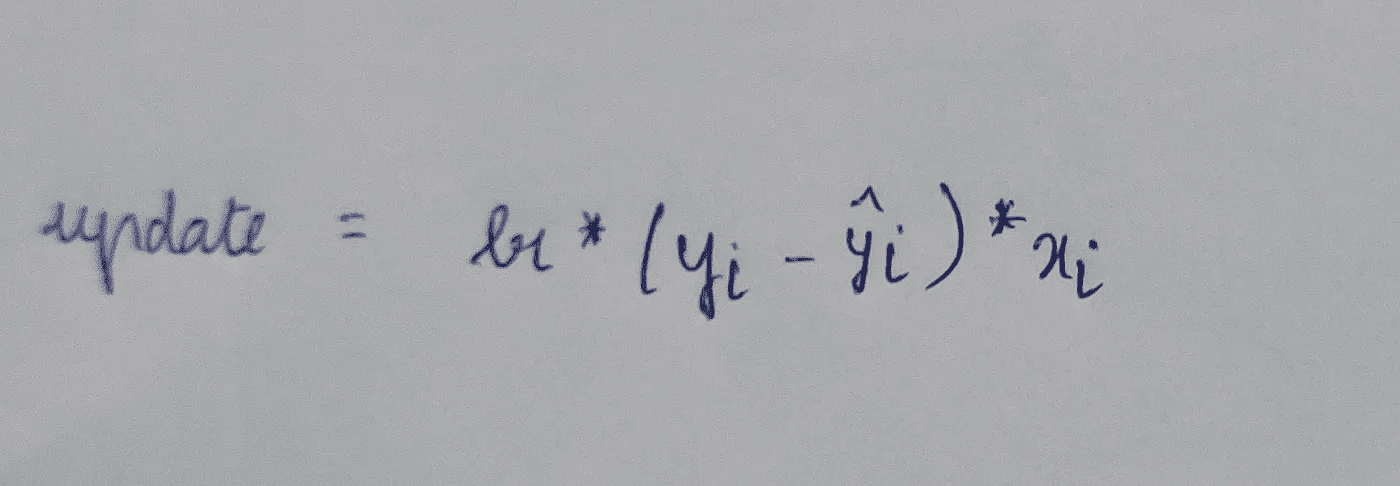 update = lr * (yi - ŷi) * xi